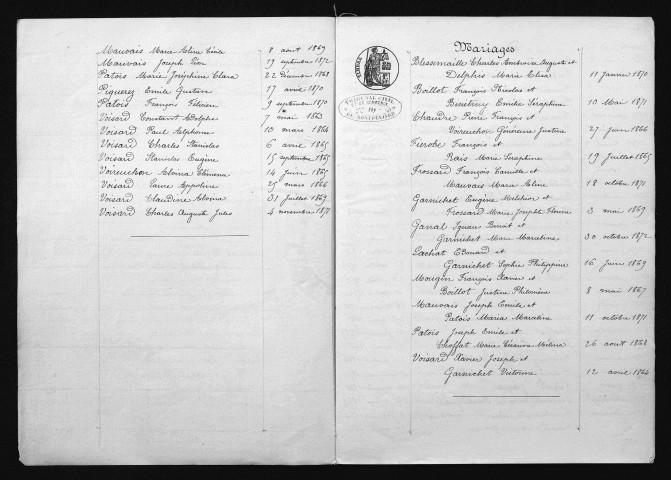 Mauvais Marie Celine Cécile 8 aout 1869
Mauvais Joseph Léon 29 septembre 1872
Patois Marie Joséphine Clara 22 Décembre 1868
Piquerez Emile Gustave 17 avril 1870
Patois François Félicien 9 septembre 1870
Voisard Constant Adolphe 7 mai 1863
Voisard Paul Alphonse 10 mars 1864
Voisard Charles Stanislas 6 avril 1865
Voisard Stanislas Eugène 15 septembre 1865
Voireuchon Alvina Philomena 14 juin 1865
Voisard Laure Appoline 25 mars 1866
Voisard Claudine Alvina 31 juillet 1869
Voisard Charles Auguste Jules 4 novembre 1871
Mariages
Blessemaille Charles Ambroise Auguste et
Delphis Marie Elisa 11 Janvier 1870
Boillot François Nicolas et
Emilie Séraphine 10 Mai 1871
Chaudre Pierre François et
Voireuchon Généreuse Justine 27 juin 1866
Fierobe François et
Rais Marie Seraphine 19 juillet 1865
Frossard François Camille et
Mauvais Marie Celine 18 octobre 1871
Garnichet Eugène Melchior et
Frossard Marie Josephte Florine 3 mai 1869
Garral Ignace Benoit et
Garnichet Marie Marceline 30 octobre 1872
Lachat Edouard et
Garnichet Sophie Philippine 16 juin 1869
Mougin François Xavier et
Boillot Justine Philomène 8 mai 1867
Mauvais Joseph Emile et
Patois Maria Marceline 11 octobre 1871
Patois Joseph Emile et
Choffat Marie Melina 26 aout 1868
Voisard Xavier Joseph et
Garnichet Victorine 12 avril 1864
TRIBUNAL CIVIL
DE MONTBÉLIARD